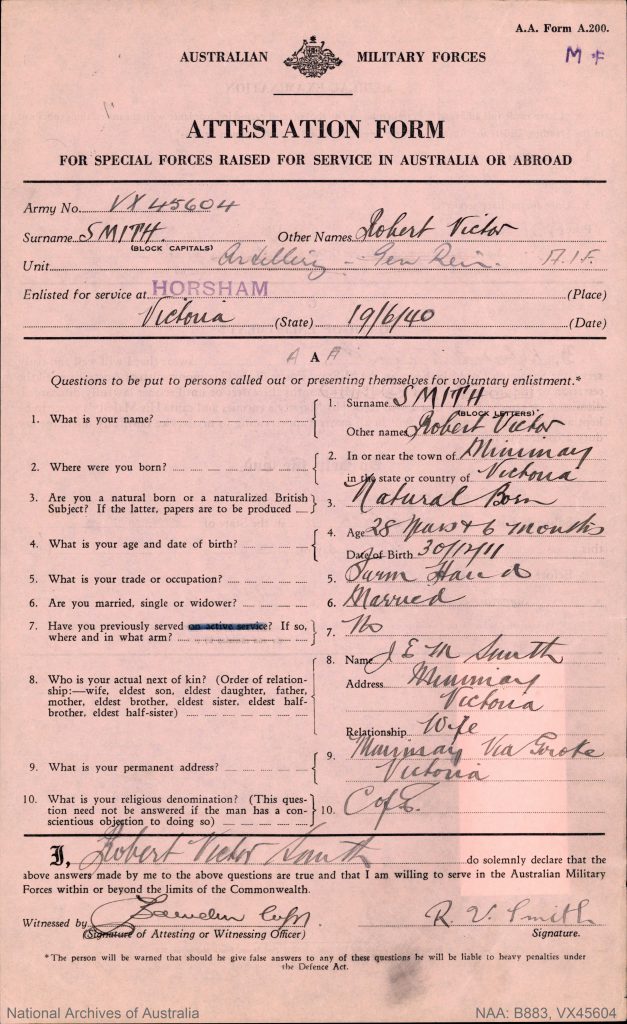 A.A. Form A.200.
M F
AUSTRALIAN MILITARY FORCES
ATTESTATION FORM
FOR SPECIAL FORCES RAISED FOR SERVICE IN AUSTRALIA OR ABROAD
Army No. VX 45604
Surname SMITH. Other Names Robert Victor
(BLOCK CAPITALS)
Unit Artillery - Gen Rein. A.I.F.
Enlisted for service at HORSHAM (Place)
Victoria (State) 19/6/40 (Date)
A A
A
Questions to be put to persons called out or presenting themselves for voluntary enlistment.*
1. What is your name? 1. Surname SMITH
(BLOCK LETTERS)
Other names Robert Victor
2. Where were you born? 2. In or near the town of Minimay
in the state or country of Victoria
3. Are you a natural born or a naturalized British
Subject? If the latter, papers are to be produced 3. Natural Born
4. What is your age and date of birth? 4. Age 28 years & 6 months
Date of Birth 30/12/11
5. What is your trade or occupation? 5. Farm Hand
6. Are you married, single or widower? 6. Married
7. Have you previously served on active service? If so,
where and in what arm? 7. No
8. Who is your actual next of kin? (Order of relation-
ship:—wife, eldest son, eldest daughter, father,
mother, eldest brother, eldest sister, eldest half-
brother, eldest half-sister)
8. Name J E M Smith
Address Minimay
Victoria
Relationship Wife
9. What is your permanent address? 9. Minimay Via Goroke
Victoria
10. What is your religious denomination? (This ques-
tion need not be answered if the man has a con-
scientious objection to doing so) 10. C of E.
I, Robert Victor Smith do solemnly declare that the
above answers made by me to the above questions are true and that I am willing to serve in the Australian Military
Forces within or beyond the limits of the Commonwealth.
Witnessed by R. V. Smith
(Signature of Attesting or Witnessing Officer) Signature.
*The person will be warned that should he give false answers to any of these questions he will be liable to heavy penalties under
the Defence Act.
National Archives of Australia NAA: B883, VX45604